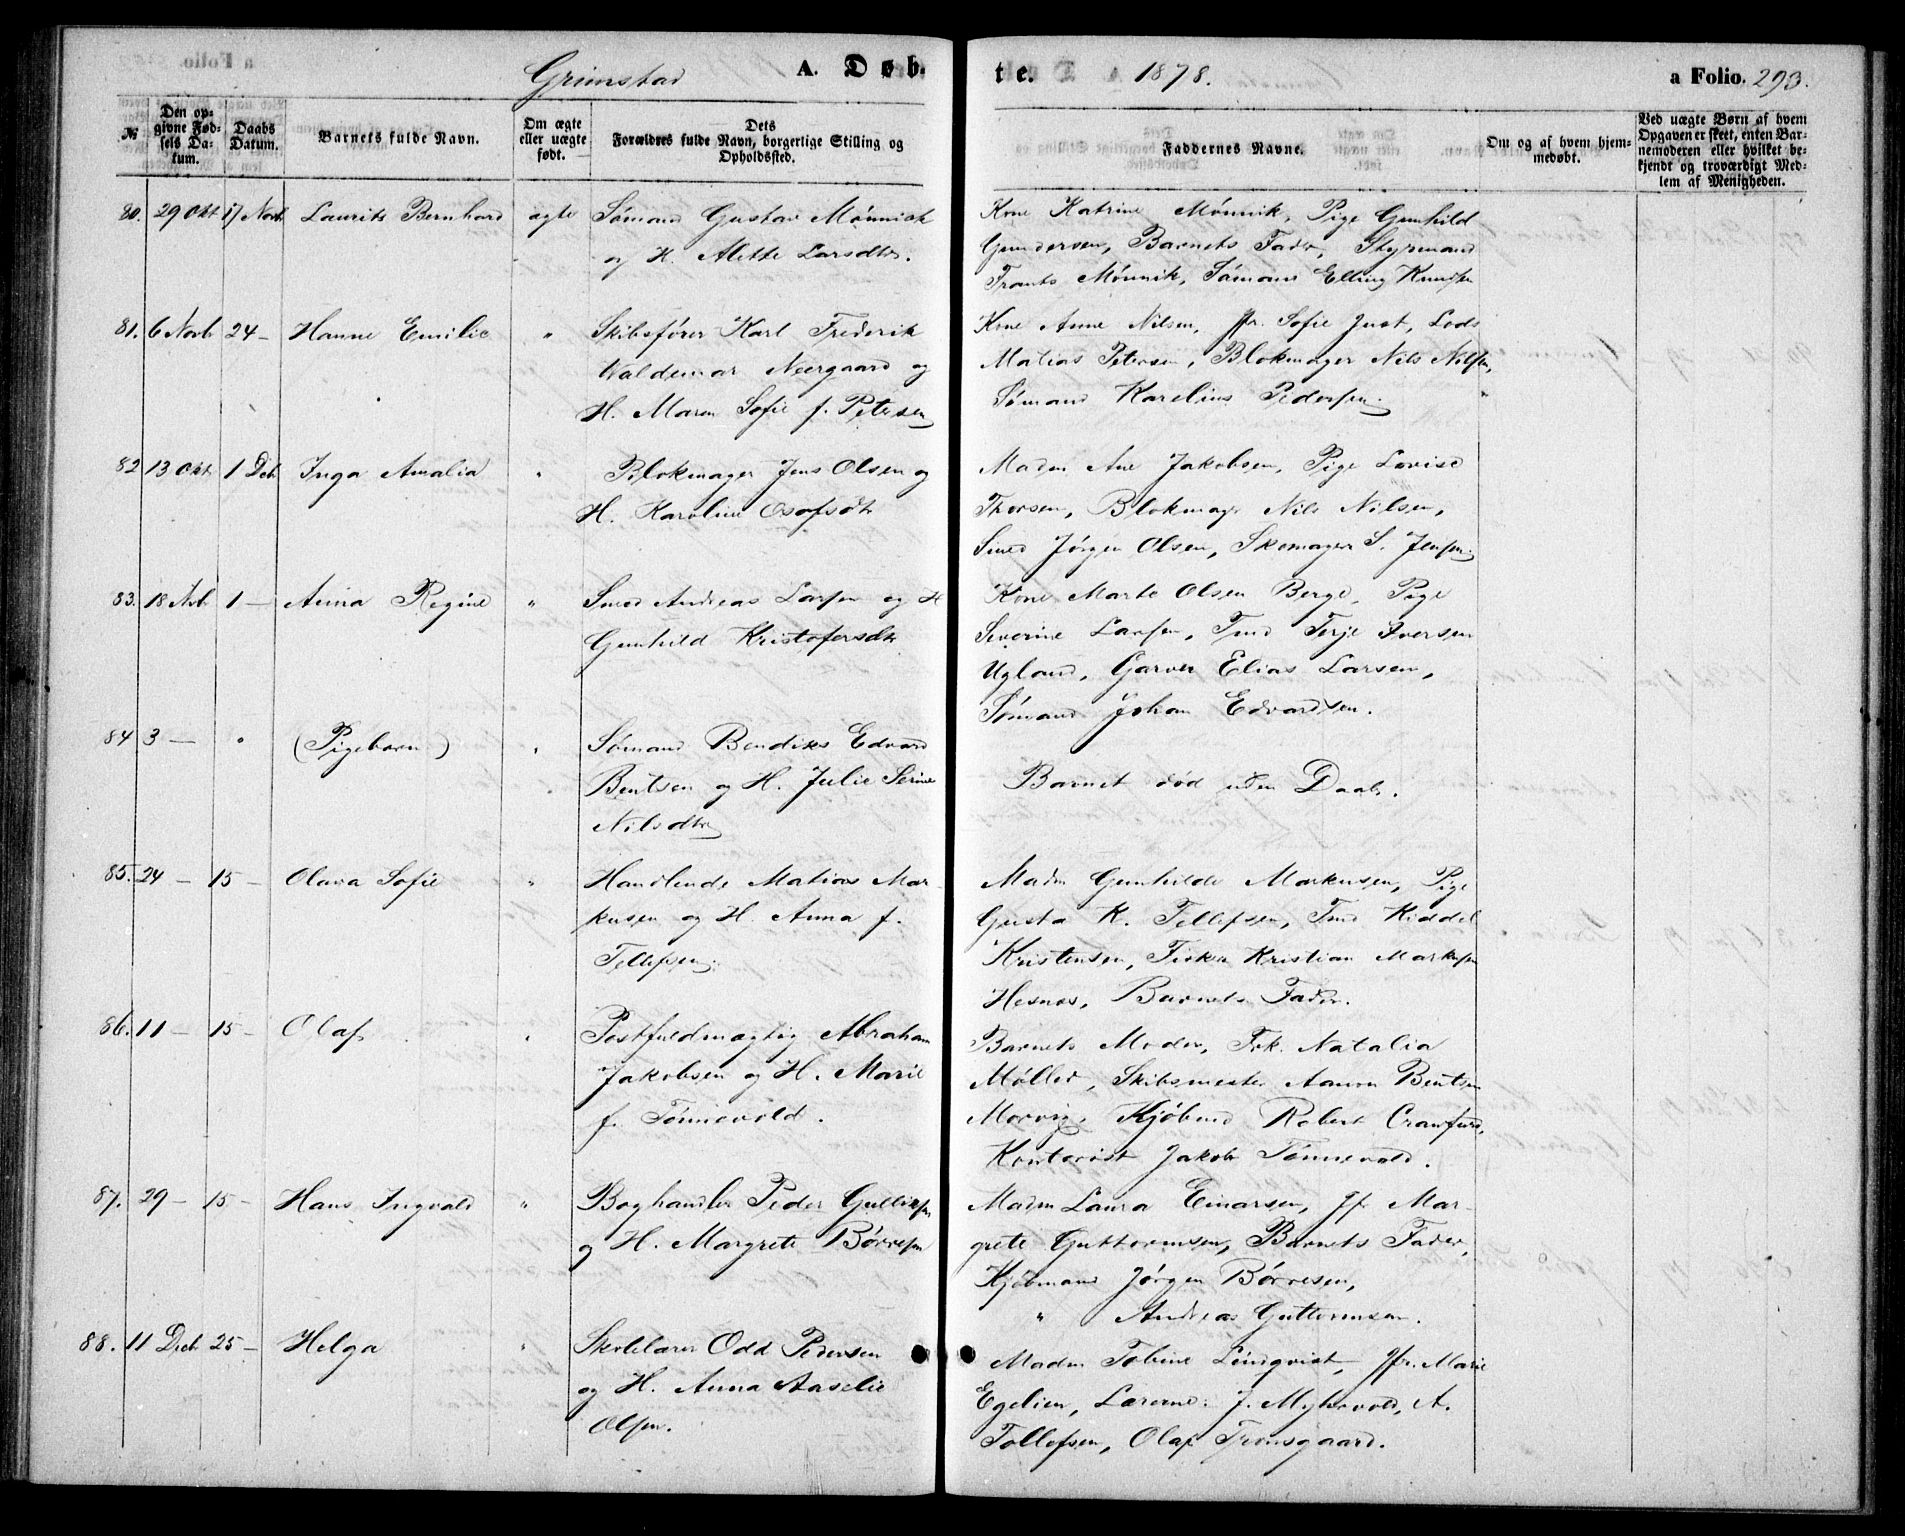 Grimstad A. Døb-
te. 1878. a Folio. 293.
№ Den opgivne Fødsels Datum. Daabs Datum. Barnets fulde Navn. Om ægte eller uægte født. Dets Forældres fulde Navn, borgerlige Stilling og Opholdssted.
Faddernes Navne. Om og af hvem hjemmedøbt. Ved uægte Børn af hvem Opgaven er skeet, enten Barnemoderen eller hvilket bekjendt og troværdigt Medlem af Menigheden.
80. 29 Okt 17 Novb Laurits Bernhard ægte Sømand Gustav Mønnick
og H. Alette Larsdtr.
Kone Katrine Mønnik, Pige Gunhild
Gundersen, Barnets Fader, Styrmand
Frants Mønnik, Sømand Elling Knudsen
81. 6 Novb 24 - Hanne Emilie " Skibsfører Karl Frederik
Waldemar Neergaard og
H. Maren Sofie f. Petersen
Kone Anne Nilsen, Jfr. Sofie Just, Lods
Matias Petersen, Blokmager Nils Nilsen,
Sømand Karelius Pedersen.
82 13 Okt 1 Deb Inga Amalia " Blokmager Jens Olsen og
H. Karoline Osofsdtr
Madm Ane Jakobsen, Pige Lovise
Thorsen, Blokmager Nils Nilsen,
Smed Jørgen Olsen, Skomager S. Jensen.
83. 18 Novb 1 - Anna Regine " Smed Andreas Larsen og H
Gunhild Kristofersdtr
Kone Marte Olsen Berge, Pige
Severine Larsen, Tmd Terje Iversen
Ugland, Garver Elias Larsen,
Sømand Johan Edvardsen.
84 3 - " (Pigebarn) " Sømand Bendiks Edvard
Bentsen og H. Julie Serine
Nilsdtr
Barnet død uden Daab.
85. 24 - 15 - Olava Sofie " Handlende Matias Mar-
kusen og H. Anna f.
Tellefsen.
Madm Gunhilde Markusen, Pige
Gusta K. Tellefsen, Tmd Kiddel
Kristensen, Fisker Kristian Markusen
Hesnes, Barnets Fader.
86. 11 - 15 - Olaf " Postfuldmægtig Abraham
Jakobsen og H. Marie
f. Tønnevold.
Barnets Moder, Frk. Natalia
Møller, Skibsmester Aanon Bentsen
Morvig, Kjøbmd Robert Crawfurd,
Kontorist Jakob Tønnevold.
87. 29 - 15 - Hans Ingvald " Boghandler Peder Gulliksen
og H. Margrete Børresen
Madm Laura Einarsen, Jfr Mar-
grete Guttormsen, Barnets Fader,
Kjøbmand Jørgen Børresen,
" Andreas Guttormsen.
88. 11 Deb 25 - Helga " Skolelærer Odd Pedersen
og H. Anna Aaselie
Olsen.
Madm Tobine Lindqvist, Jfr. Marie
Egelien, Lærerne: J. Myhrvold, A.
Tollefsen, Olaf Tronsgaard.